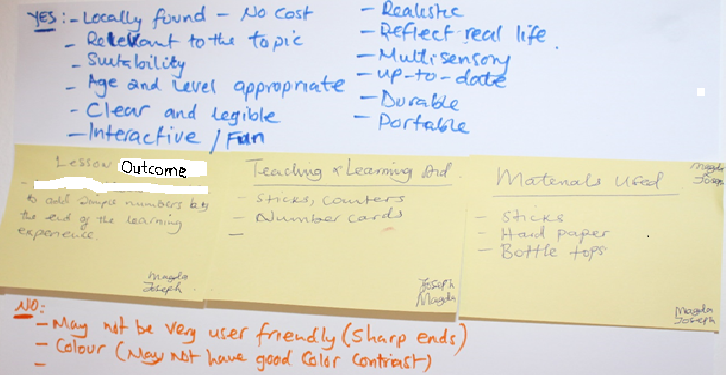 YES: - Locally found - No cost
- Relevant to the topic
- Suitability
- Age and level appropriate
- Clear and legible
- Interactive / Fun
- Realistic
- Reflect real life.
- Multisensory
- up-to-date
- Durable
- Portable
Lesson Outcome
- to add simple numbers by
the end of the learning
experience.
Magda
Joseph
Teaching & Learning Aid
- Sticks, counters
- Number cards
-
Joseph
Magda
Materials used
Magda
Joseph
- Sticks
- Hard paper
- Bottle tops
Magda
Joseph
NO:
- May not be very user friendly (sharp ends)
- Colour (May not have good color contrast)
-